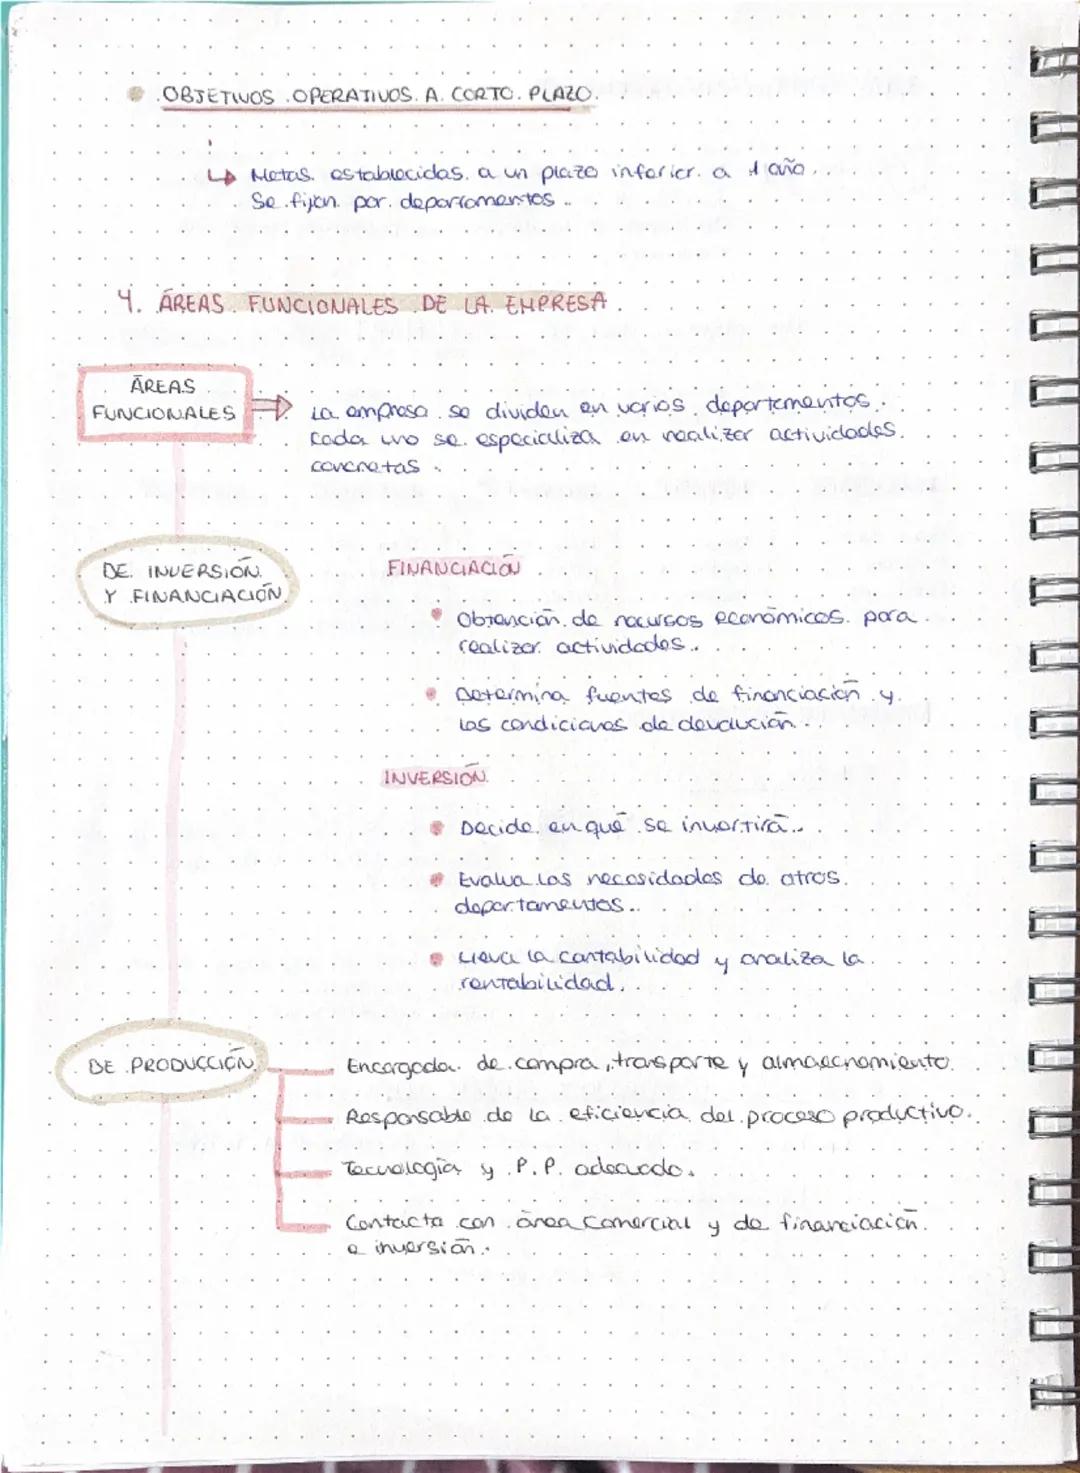 OBJETIVOS OPERATIVOS A CORTO PLAZO
Metas establecidas a un plazo inferior a 1 año.
Se fijan por departamentos.
4. ÁREAS FUNCIONALES DE LA EMPRESA
ÁREAS
FUNCIONALES
La empresa se dividen en varios departamentos.
Cada uno se especializa en realizar actividades
concretas.
DE INVERSIÓN
Y FINANCIACIÓN
FINANCIACIÓN
Obtención de recursos económicos para
realizar actividades.
Determina fuentes de financiación y
las condiciones de devolución.
INVERSIÓN
Decide en qué se invertirá.
Evalua las necesidades de otros
departamentos.
Lleva la contabilidad y analiza la
rentabilidad.
DE PRODUCCIÓN
Encargada de compra, transporte y almacenamiento.
Responsable de la eficiencia del proceso productivo.
Tecnología y P.P. adecuado.
Contacto con área comercial y de financiación
e inversión.